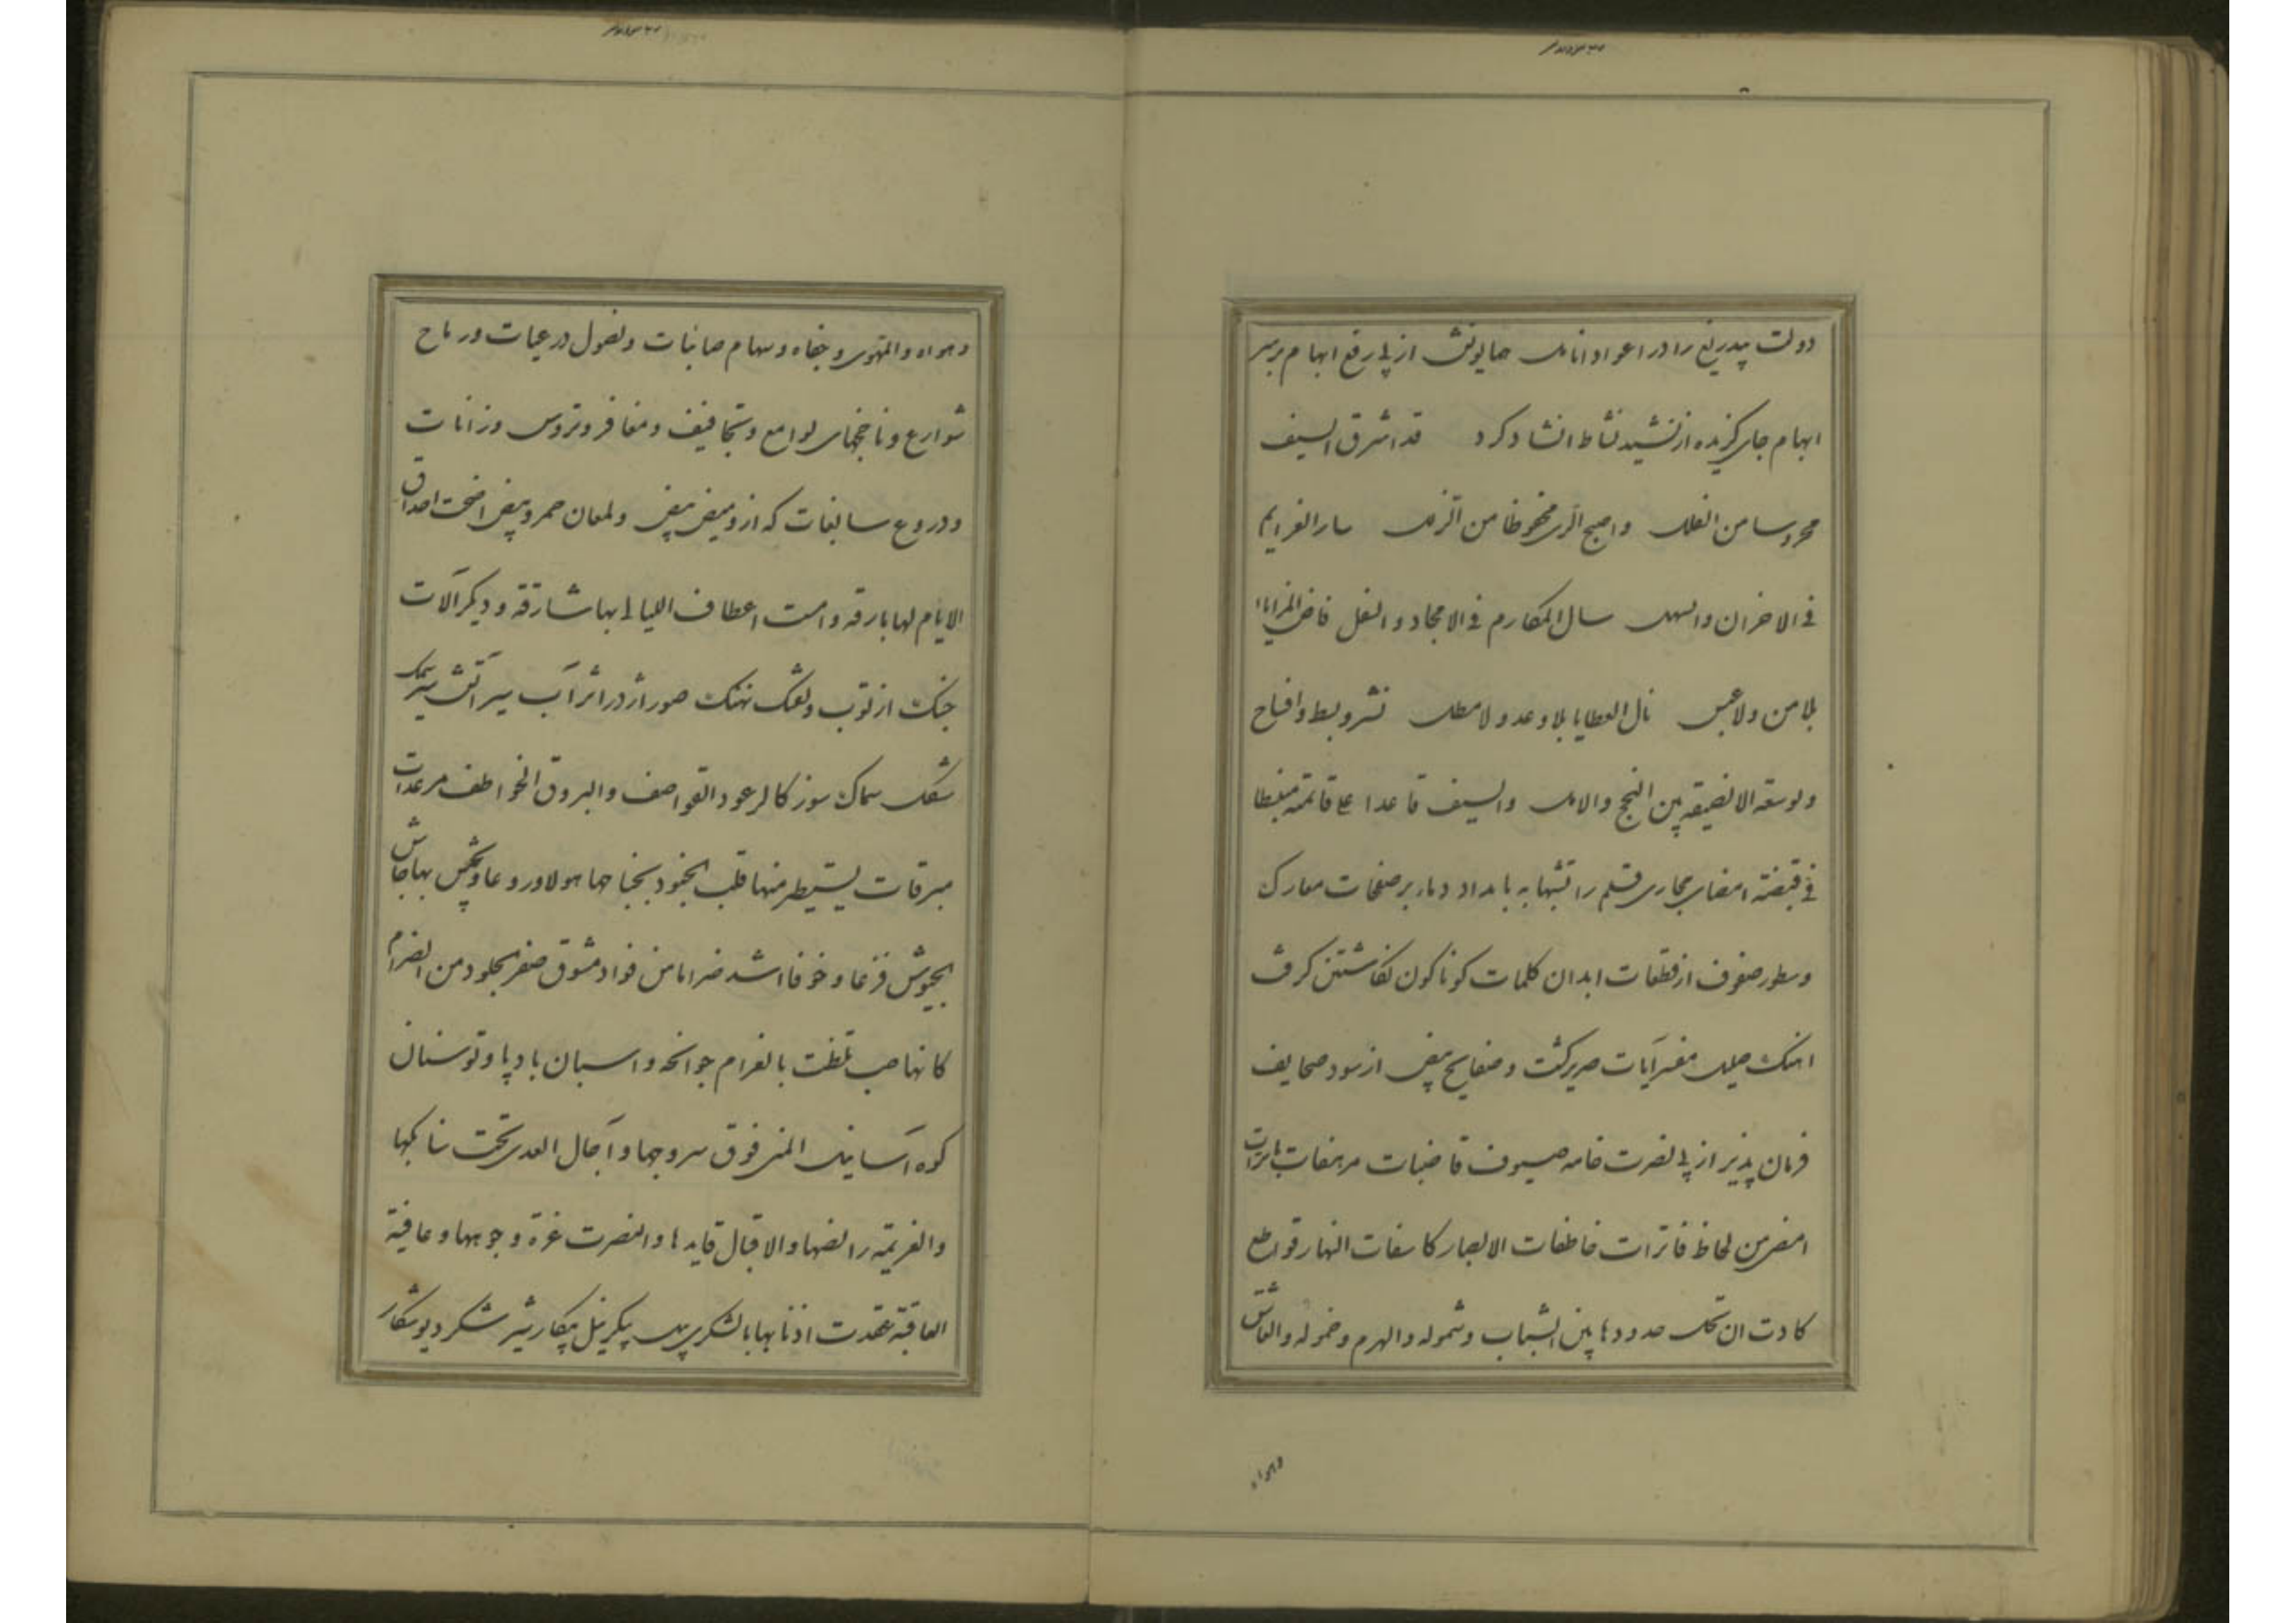 دولت پیدریغ را در اعواد انامل همایونش از پی رفع ابهام بر سر
ابهام جای گزیده از نشید نشاط انشاد کرد قد اشرق السیف
محروسا من الفلل و اصبح الری محفوظا من الزلل سار الغرایم
فی الاحزان والسهل سال المکارم فی الامجاد و النفل فاض المزایا
بلا من ولا عبس نال العطایا بلا وعد ولا مطل نشر و بسط وافساح
وتوسعة الا لضیقه بین النجح والامل والسیف قاعدا علی قائمه مغبطا
فی قبضته امضای مجاری قلم را تشبها به بامداد دماء بر صفحات معارک
وسطور صفوف از قطعات ابدان کلمات کوناکون نکاشتن کرفت
اهنک صلیل مفسر آیات صریر کشت و صفایح بیض از سود صحایف
فرمان پذیر از پی نصرت خامه سیوف قاضبات مرهفات باترات
امضی من لحاظ فاترات خاطفات الابصار کاسفات النهار قواطع
کادت ان تحک حدودها بین الشباب و شموله والهرم و خموله والعاشق
وهواه
وهواه والمتهوی وجفاه وسهام صائبات ونصول در عیات ورماح
شوارع وناخجهای لوامع وتجافیف ومغافر وتروس وزانات
ودروع سابغات که از ومیض بیض ولمعان حمر وبیض اضحت احداق
الایام لها بارقه وامست اعطاف اللیالی بها شارقه ودیکر آلات
جنک از توپ وتفنک نهنک صور اژدر اثر آب سیر آتش سیر سمک
شکل سماک سوز کالرعود القواصف والبروق الخواطف مرعدات
مبرقات یستطیر منها قلب الجنود بجناحها هولا وروعا ویجیش بها جاش
الجیوش فزعا وخوفا اشد ضراما من فواد مشوق صفر الجلود من الضرام
کانها صب تلظت بالغرام جوانحه واسبان باد پا وتوسنان
کوه آسا نیل المنی فوق سروجها وآجال العدی تحت سنابکها
والعزیمه رائضها والاقبال قایدها والنصرت غرة وجوهها وعافیة
العاقبة عقدت اذنابها با لشکر پیل پیکر نیل پیکار شیر شکر دیو شکار